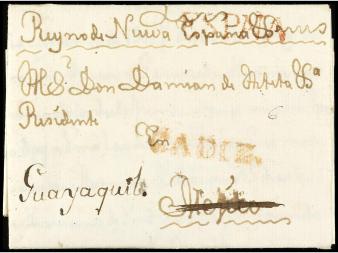 Reyno de Nueva España
Sr. Don Damian de
Residente En
CADIZ.
Guayaquil.
Mexico